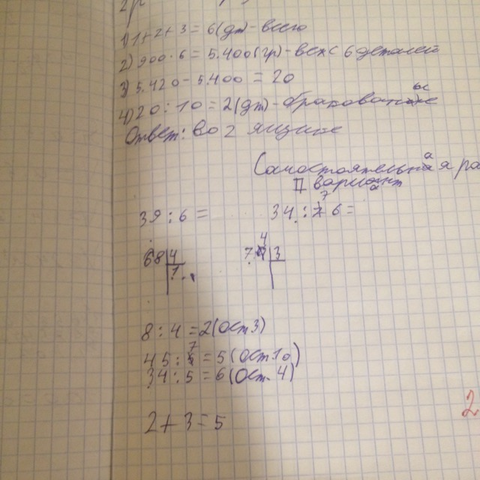 1) 1+2+3 = 6 (дт) - всего
2) 900 · 6 = 5.400 (гр) - вех с 6 деталей
3) 5.420 - 5.400 = 20
4) 20 : 10 = 2 (дт) - бракованые
Ответ: во 2 ящике
Самостоятельная ра
II вариант
39 : 6 = 34 : 7 6 =
68 4
1
74 3
8 : 4 = 2 (ост 3)
45 : 7 = 5 (ост 10)
34 : 5 = 6 (ост. 4)
2 + 3 = 5
2